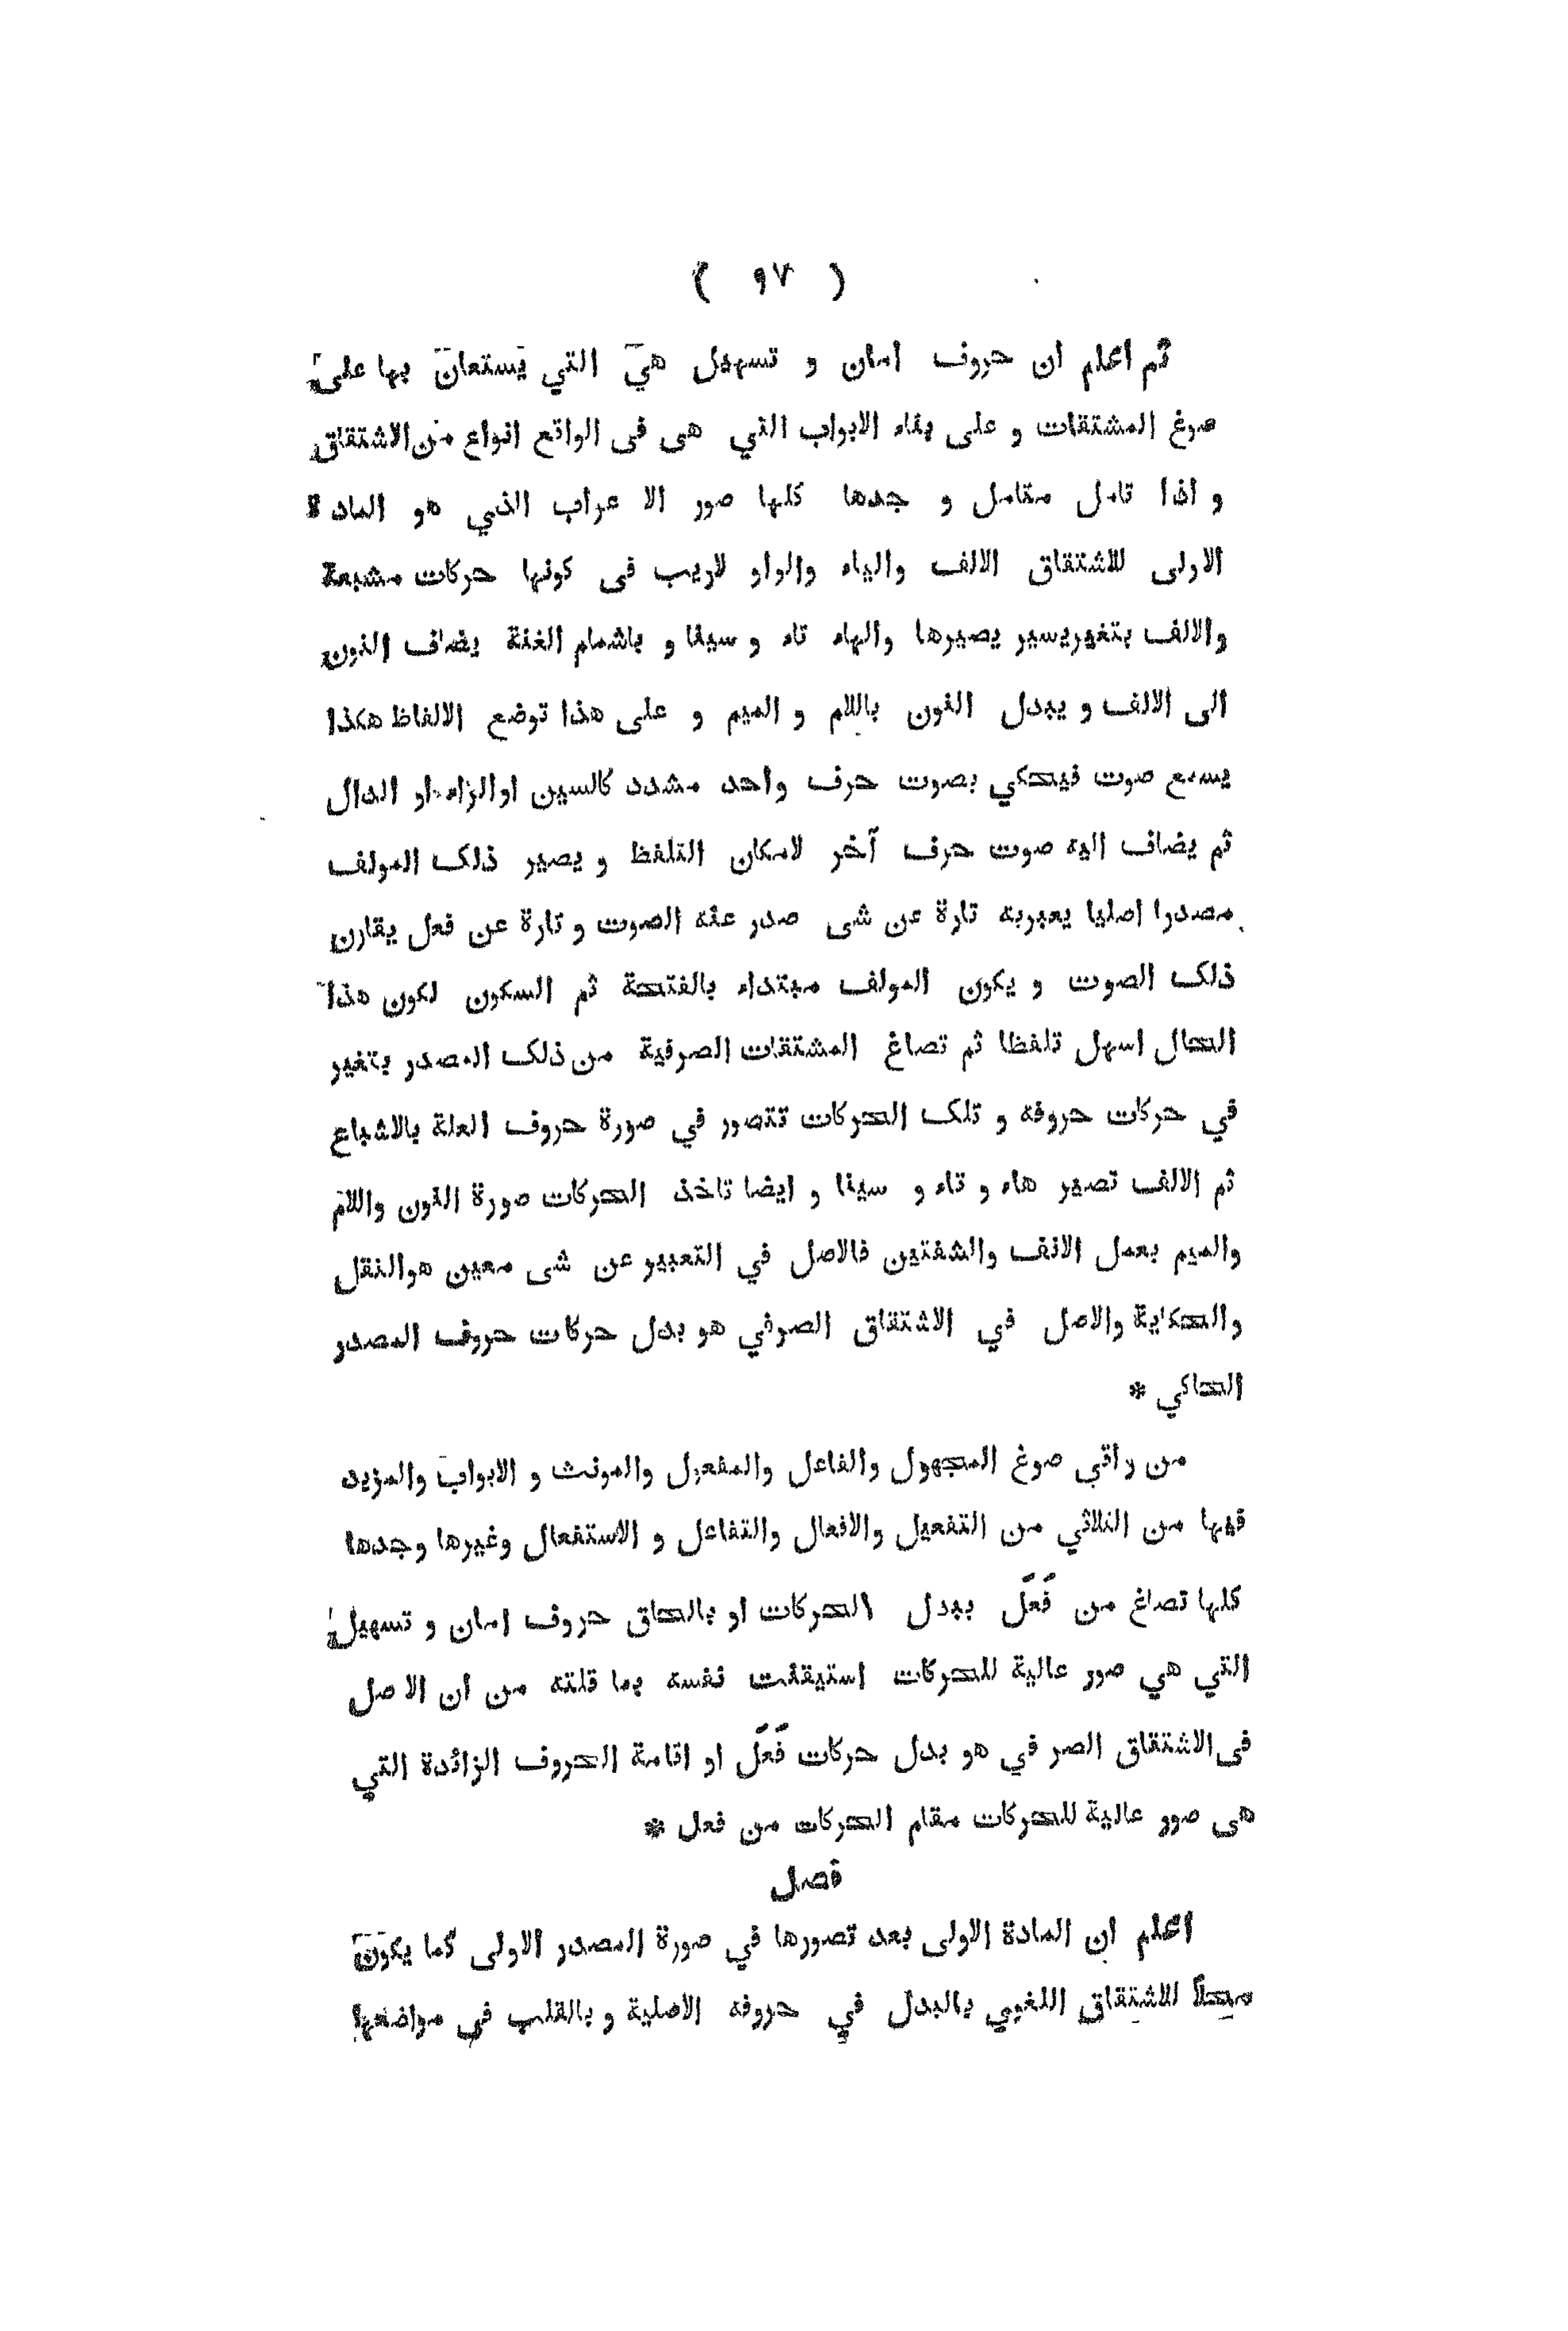 ( ٩٧ )
ثم اعلم ان حروف امان و تسهيل هي التي يستعان بها على
صوغ المشتقات و على بناء الابواب التي هى فى الواقع انواع من الاشتقاق
و اذا تامل متامل و جدها كلها صور الا عراب الذي هو المادة
الاولى للاشتقاق الالف والياء والواو لاريب فى كونها حركات مشبعة
والالف بتغيريسير يصيرها والهاء تاء و سينا و باشمام الغنة يضاف النون
الى الالف و يبدل النون باللام و الميم و على هذا توضع الالفاظ هكذا
يسمع صوت فيحكي بصوت حرف واحد مشدد كالسين اوالزاء او الدال
ثم يضاف اليه صوت حرف آخر لامكان التلفظ و يصير ذلك المولف
مصدرا اصليا يعبربه تارة عن شى صدر عنه الصوت و تارة عن فعل يقارن
ذلك الصوت و يكون المولف مبتداء بالفتحة ثم السكون لكون هذا
الحال اسهل تلفظا ثم تصاغ المشتقات الصرفية من ذلك المصدر بتغير
في حركات حروفه و تلك الحركات تتصور في صورة حروف العلة بالاشباع
ثم الالف تصير هاء و تاء و سينا و ايضا تاخذ الحركات صورة النون واللام
والميم بعمل الانف والشفتين فالاصل في التعبير عن شى معين هوالنقل
والحكاية والاصل في الاشتقاق الصرفي هو بدل حركات حروف المصدر
الحاكي *
من راقي صوغ المجهول والفاعل والمفعول والمونث و الابواب والمزيد
فيها من الثلاثي من التفعيل والافعال والتفاعل و الاستفعال وغيرها وجدها
كلها تصاغ من فَعَل ببدل الحركات او بالحاق حروف امان و تسهيل
التي هي صور عالية للحركات استيقنت نفسه بما قلته من ان الا صل
فى الاشتقاق الصر في هو بدل حركات فَعَل او اقامة الحروف الزائدة التي
هى صور عالية للحركات مقام الحركات من فعل *
فصل
اعلم ان المادة الاولى بعد تصورها في صورة المصدر الاولى كما يكون
محلا للاشتقاق اللغوي بالبدل في حروفه الاصلية و بالقلب في مواضعها